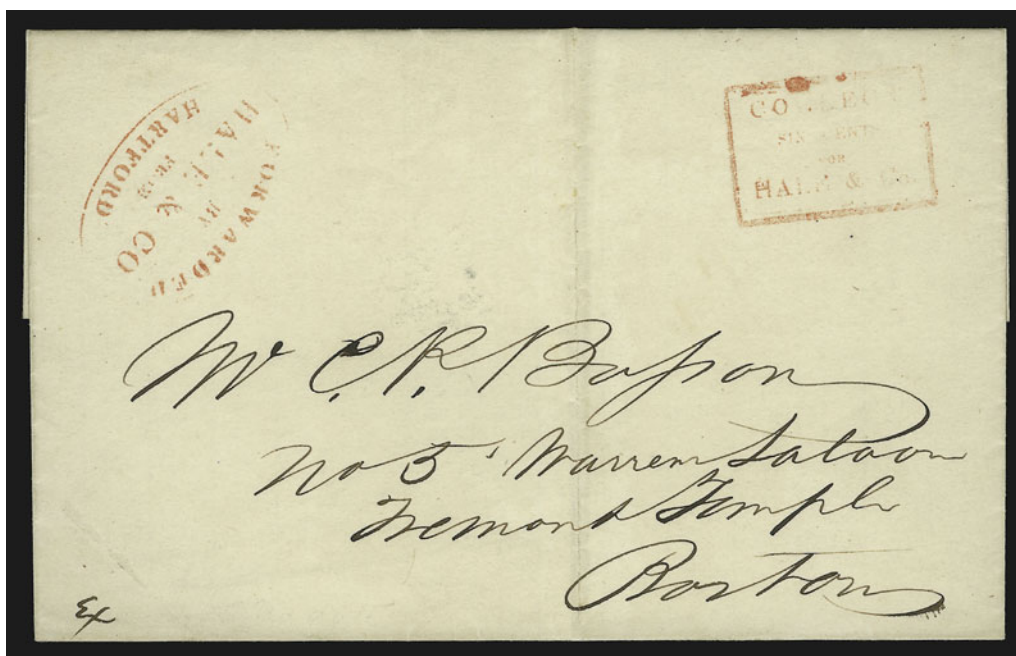 FORWARDED
BY
HALE & CO
FROM
HARTFORD
COLLECT
SIX CENTS
FOR
HALE & Co.
Mr C. R. Basson
No 5 Warren Saloon
Tremont Temple
Boston
Ex